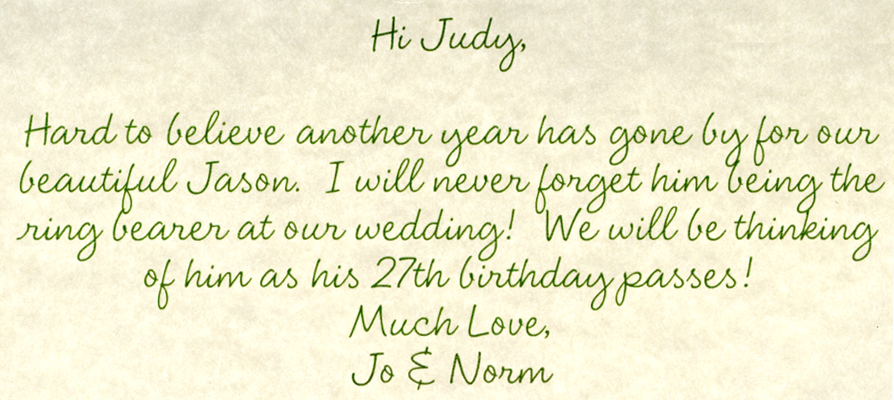 Hi Judy,
Hard to believe another year has gone by for our
beautiful Jason. I will never forget him being the
ring bearer at our wedding! We will be thinking
of him as his 27th birthday passes!
Much Love,
Jo & Norm